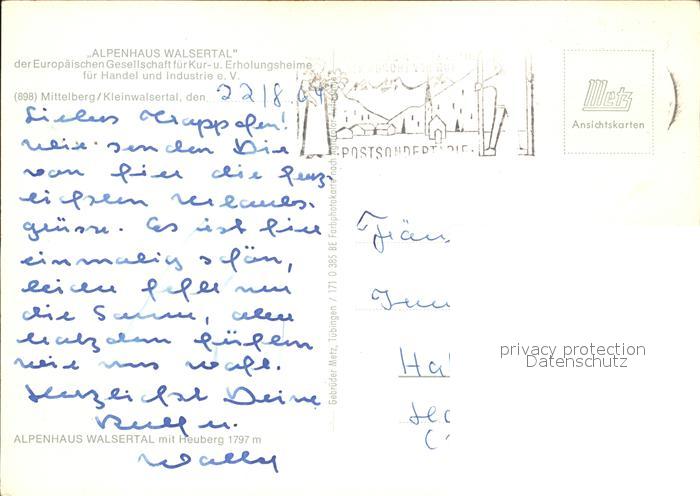 „ALPENHAUS WALSERTAL"
der Europäischen Gesellschaft für Kur- u. Erholungsheime
für Handel und Industrie e. V.
(898) Mittelberg/Kleinwalsertal, den 22/8.
Liebes
Wir senden Dir
von hier die herz-
lichsten Urlaubs-
grüsse. Es ist hier
einmalig schön,
leider fehlt nur
die Sonne, aber
trotzdem fühlen
wir uns wohl.
Herzlichst Deine
u.
Wally
ALPENHAUS WALSERTAL mit Heuberg 1797 m
Gebrüder Metz, Tübingen / 171 0 385 BE Farbphotokarte nach
POSTSONDERTARIF
Metz
Ansichtskarten
Fräu
Ha
privacy protection
Datenschutz